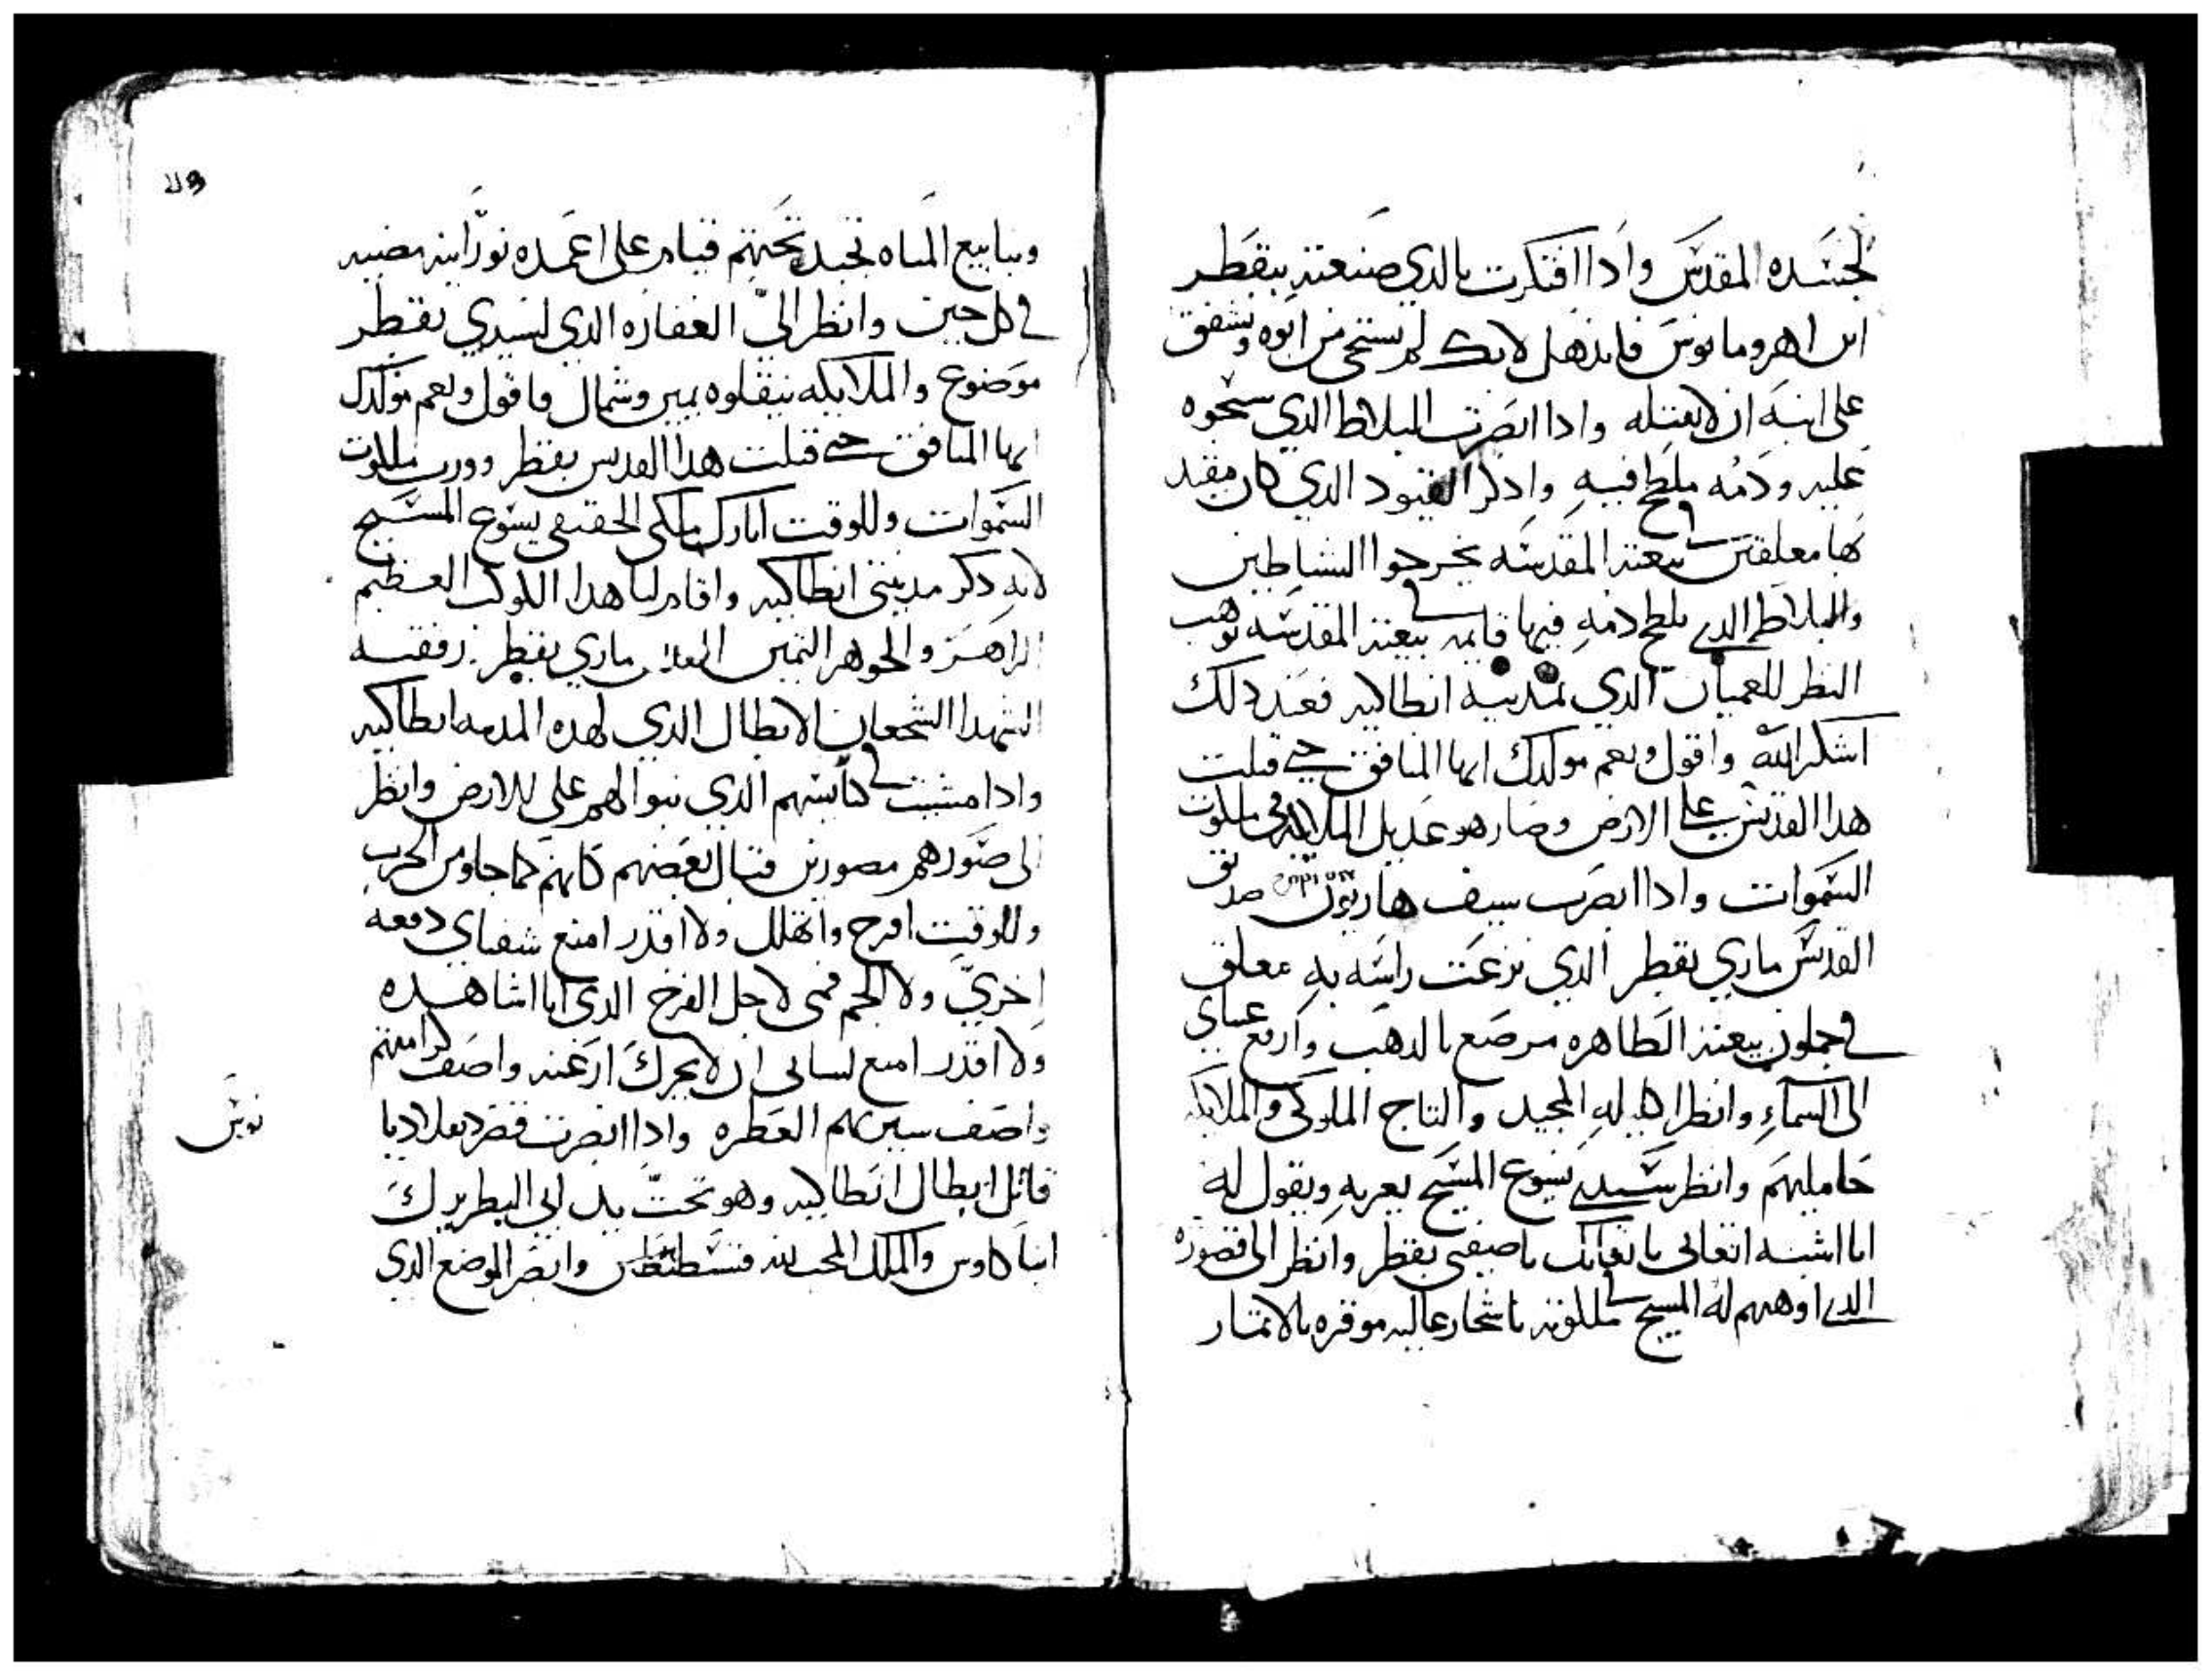 لجسده المقدس واذا افتكرت بالذي صنعته ببقطر
ابن اهرومانوس فانذهل لانك لم تستحي من ابوه ويشفق
على ابنه ان لا يقتله واذا ابصرت البلاط الذي سحبوه
عليه ودمه ملطخ فيه واذكر القيود الذي كان مقيد
بها معلقين في بيعته المقدسه يخرجوا الشياطين
والبلاط الذي ملطخ دمه فيها قايمه في بيعته المقدسه توهب
النظر للعميان الذي لمدينة انطاكيه فعند ذلك
اشكر الله واقول نعم مولدك ايها المنافق حتي قتلت
هذا القديس على الارض وصار هو عديل الملايكه في ملكوت
السموات واذا ابصرت سيف هاريون صديق
القديس ماري بقطر الذي نزعت راسه به معلق
في جملون بيعته الطاهره مرصع بالدهب وارفع عيناي
الى السماء وانظر اكليله المجيد والتاج الملوكي والملايكه
حامليهم وانظر سيدي يسوع المسيح يعزيه ويقول له
انا اشبه اتعابي باتعابك ياصفيي بقطر وانظر الى قصوره
الذي اوهبهم له المسيح في ملكوته باشجار عاليه موقره بالاتمار
وينابيع المياه تجيد تحتهم قيام على اعمده نورانيه مضيه
في كل حين وانظر الى الغفاره الذي لسيدي بقطر
موضوع والملايكه ينقلوه يمين وشمال فاقول نعم مولدك
ايها المنافق حتي قتلت هذا القديس بقطر وورث ملكوت
السموات وللوقت ابارك ملكي الحقيقي يسوع المسيح
لانه ذكر مدينتي انطاكيه واقام لنا هذا الكوكب العظيم
الزاهر والجوهر الثمين ماري بقطر رفقته
الشهدا الشجعان الابطال الذي لهذه المدينه انطاكيه
واذا مشيت في كنايسهم الذي بنوا لهم على الارض وانظر
الى صورهم مصورين قبال بعضهم كانهم كما جاو من الحرب
وللوقت افرح واتهلل ولا اقدر امنع شفتاي دفعه
اخري ولا الجم فمي لاجل الفرح الذي انا اشاهده
ولا اقدر امنع لساني ان لا يحرك ارغنه واصف كرامتهم
واصف سيرتهم العطره واذا ابصرت قصر دقلاديا
نوس
قاتل ابطال انطاكيه وهو تحت يد ابي البطريرك
انبا كاوس والملك المحب لله قسطنطس وابصر الموضع الذي